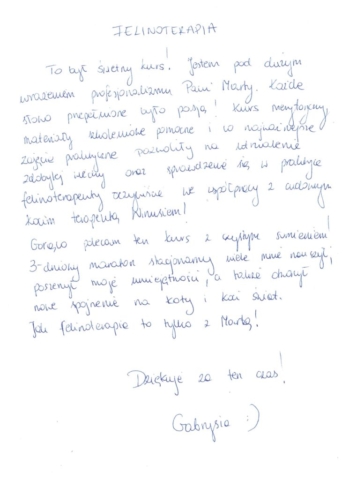 FELINOTERAPIA
To był świetny kurs! Jestem pod dużym
wrażeniem profesjonalizmu Pani Marty. Każde
słowo przepełnione było pasją! Kurs merytoryczny,
materiały szkoleniowe pomocne i co najważniejsze
zajęcia praktyczne pozwoliły na utrwalenie
zdobytej wiedzy oraz sprawdzenie się w praktyce
felinoterapeuty oczywiście we współpracy z cudownym
kocim terapeutą Winusiem!
Gorąco polecam ten kurs z czystym sumieniem!
3-dniowy maraton stacjonarny wiele mnie nauczył,
poszerzył moje umiejętności, a także otworzył
nowe spojrzenie na koty i koci świat.
Jak felinoterapia to tylko z Martą!
Dziękuję za ten czas!
Gabrysia :)